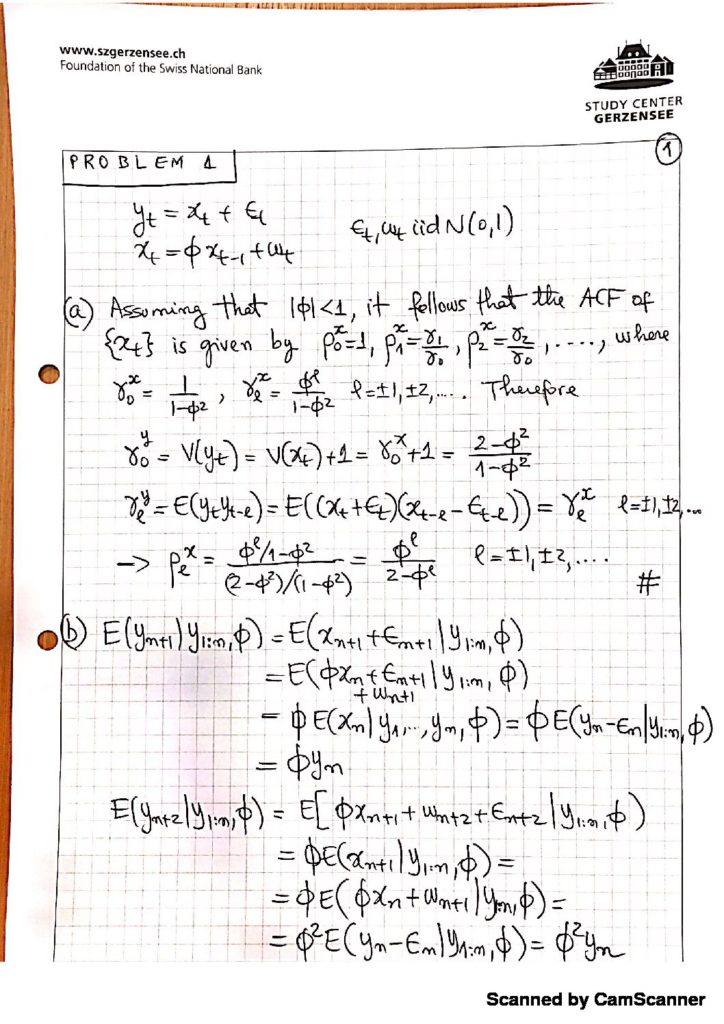 www.szgerzensee.ch
Foundation of the Swiss National Bank
STUDY CENTER
GERZENSEE
1
PROBLEM 1
y_t = x_t + ϵ_t
ϵ_t, ω_t iid N(0,1)
x_t = φ x_{t-1} + ω_t
(a) Assuming that |φ|<1, it follows that the ACF of
{x_t} is given by ρ_0^x=1, ρ_1^x=γ_1/γ_0, ρ_2^x=γ_2/γ_0, ...., where
γ_0^x = 1/(1-φ^2), γ_ℓ^x = φ^ℓ/(1-φ^2) ℓ=±1,±2,.... Therefore
γ_0^y = V(y_t) = V(x_t)+1 = γ_0^x+1 = (2-φ^2)/(1-φ^2)
γ_ℓ^y = E(y_t y_{t-ℓ}) = E((x_t+ϵ_t)(x_{t-ℓ}-ϵ_{t-ℓ})) = γ_ℓ^x ℓ=±1,±2,...
-> ρ_ℓ^x = (φ^ℓ/1-φ^2)/((2-φ^2)/(1-φ^2)) = φ^ℓ/(2-φ^ℓ) ℓ=±1,±2,....
#
(b) E(y_{n+1}|y_{1:n},φ) = E(x_{n+1}+ϵ_{n+1}|y_{1:n},φ)
= E(φx_n+ϵ_{n+1}|y_{1:n},φ)
+ω_{n+1}
= φE(x_n|y_1,...,y_n,φ) = φE(y_n-ϵ_n|y_{1:n},φ)
= φy_n
E(y_{n+2}|y_{1:n},φ) = E[φx_{n+1}+ω_{n+2}+ϵ_{n+2}|y_{1:n},φ)
= φE(x_{n+1}|y_{1:n},φ) =
= φE(φx_n+ω_{n+1}|y_{1:n},φ) =
= φ^2E(y_n-ϵ_n|y_{1:n},φ) = φ^2y_n
Scanned by CamScanner